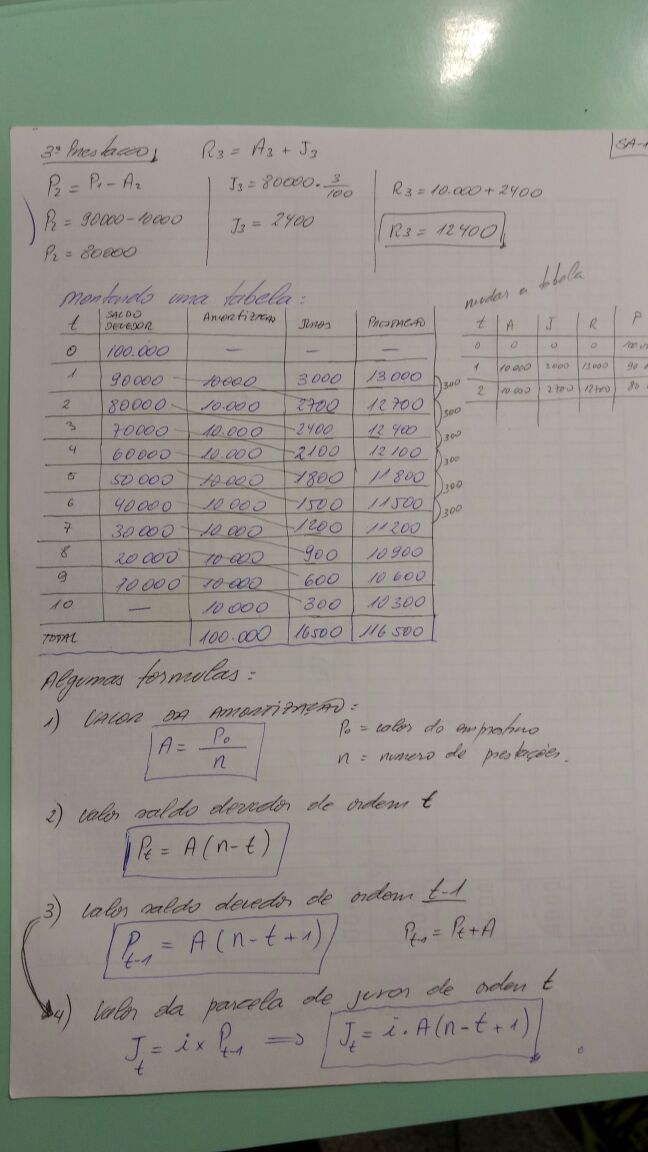 3ª Prestação R3 = A3 + J3 SA-1
P2 = P1 - A2 J3 = 80000 · 3/100 R3 = 10.000 + 2400
P2 = 90000 - 10000 J3 = 2400 R3 = 12400
P2 = 80000
Montando uma tabela:
mudar a tabela
t SALDO DEVEDOR AMORTIZAÇÃO JUROS PRESTAÇÃO
0 100.000 — — —
1 90000 10000 3000 13000
2 80000 10.000 2700 12700
3 70000 10.000 2400 12400
4 60000 10.000 2100 12100
5 50000 10.000 1800 11800
6 40000 10.000 1500 11500
7 30000 10.000 1200 11200
8 20000 10.000 900 10900
9 10000 10.000 600 10600
10 — 10000 300 10300
TOTAL 100.000 16500 116500
300
300
300
300
300
300
t A J R P
0 0 0 0
1 10.000 3000 13000
2 10.000 2700 12700
Algumas formulas:
1) VALOR DA AMORTIZAÇÃO:
A = P0/n
P0 = valor do emprestimo
n = numero de prestações.
2) Valor saldo devedor de ordem t
Pt = A(n-t)
3) Valor saldo devedor de ordem t-1
Pt-1 = A(n-t+1) Pt-1 = Pt + A
4) Valor da parcela de juros de orden t
Jt = i x Pt-1 ⟹ Jt = i · A(n-t+1)